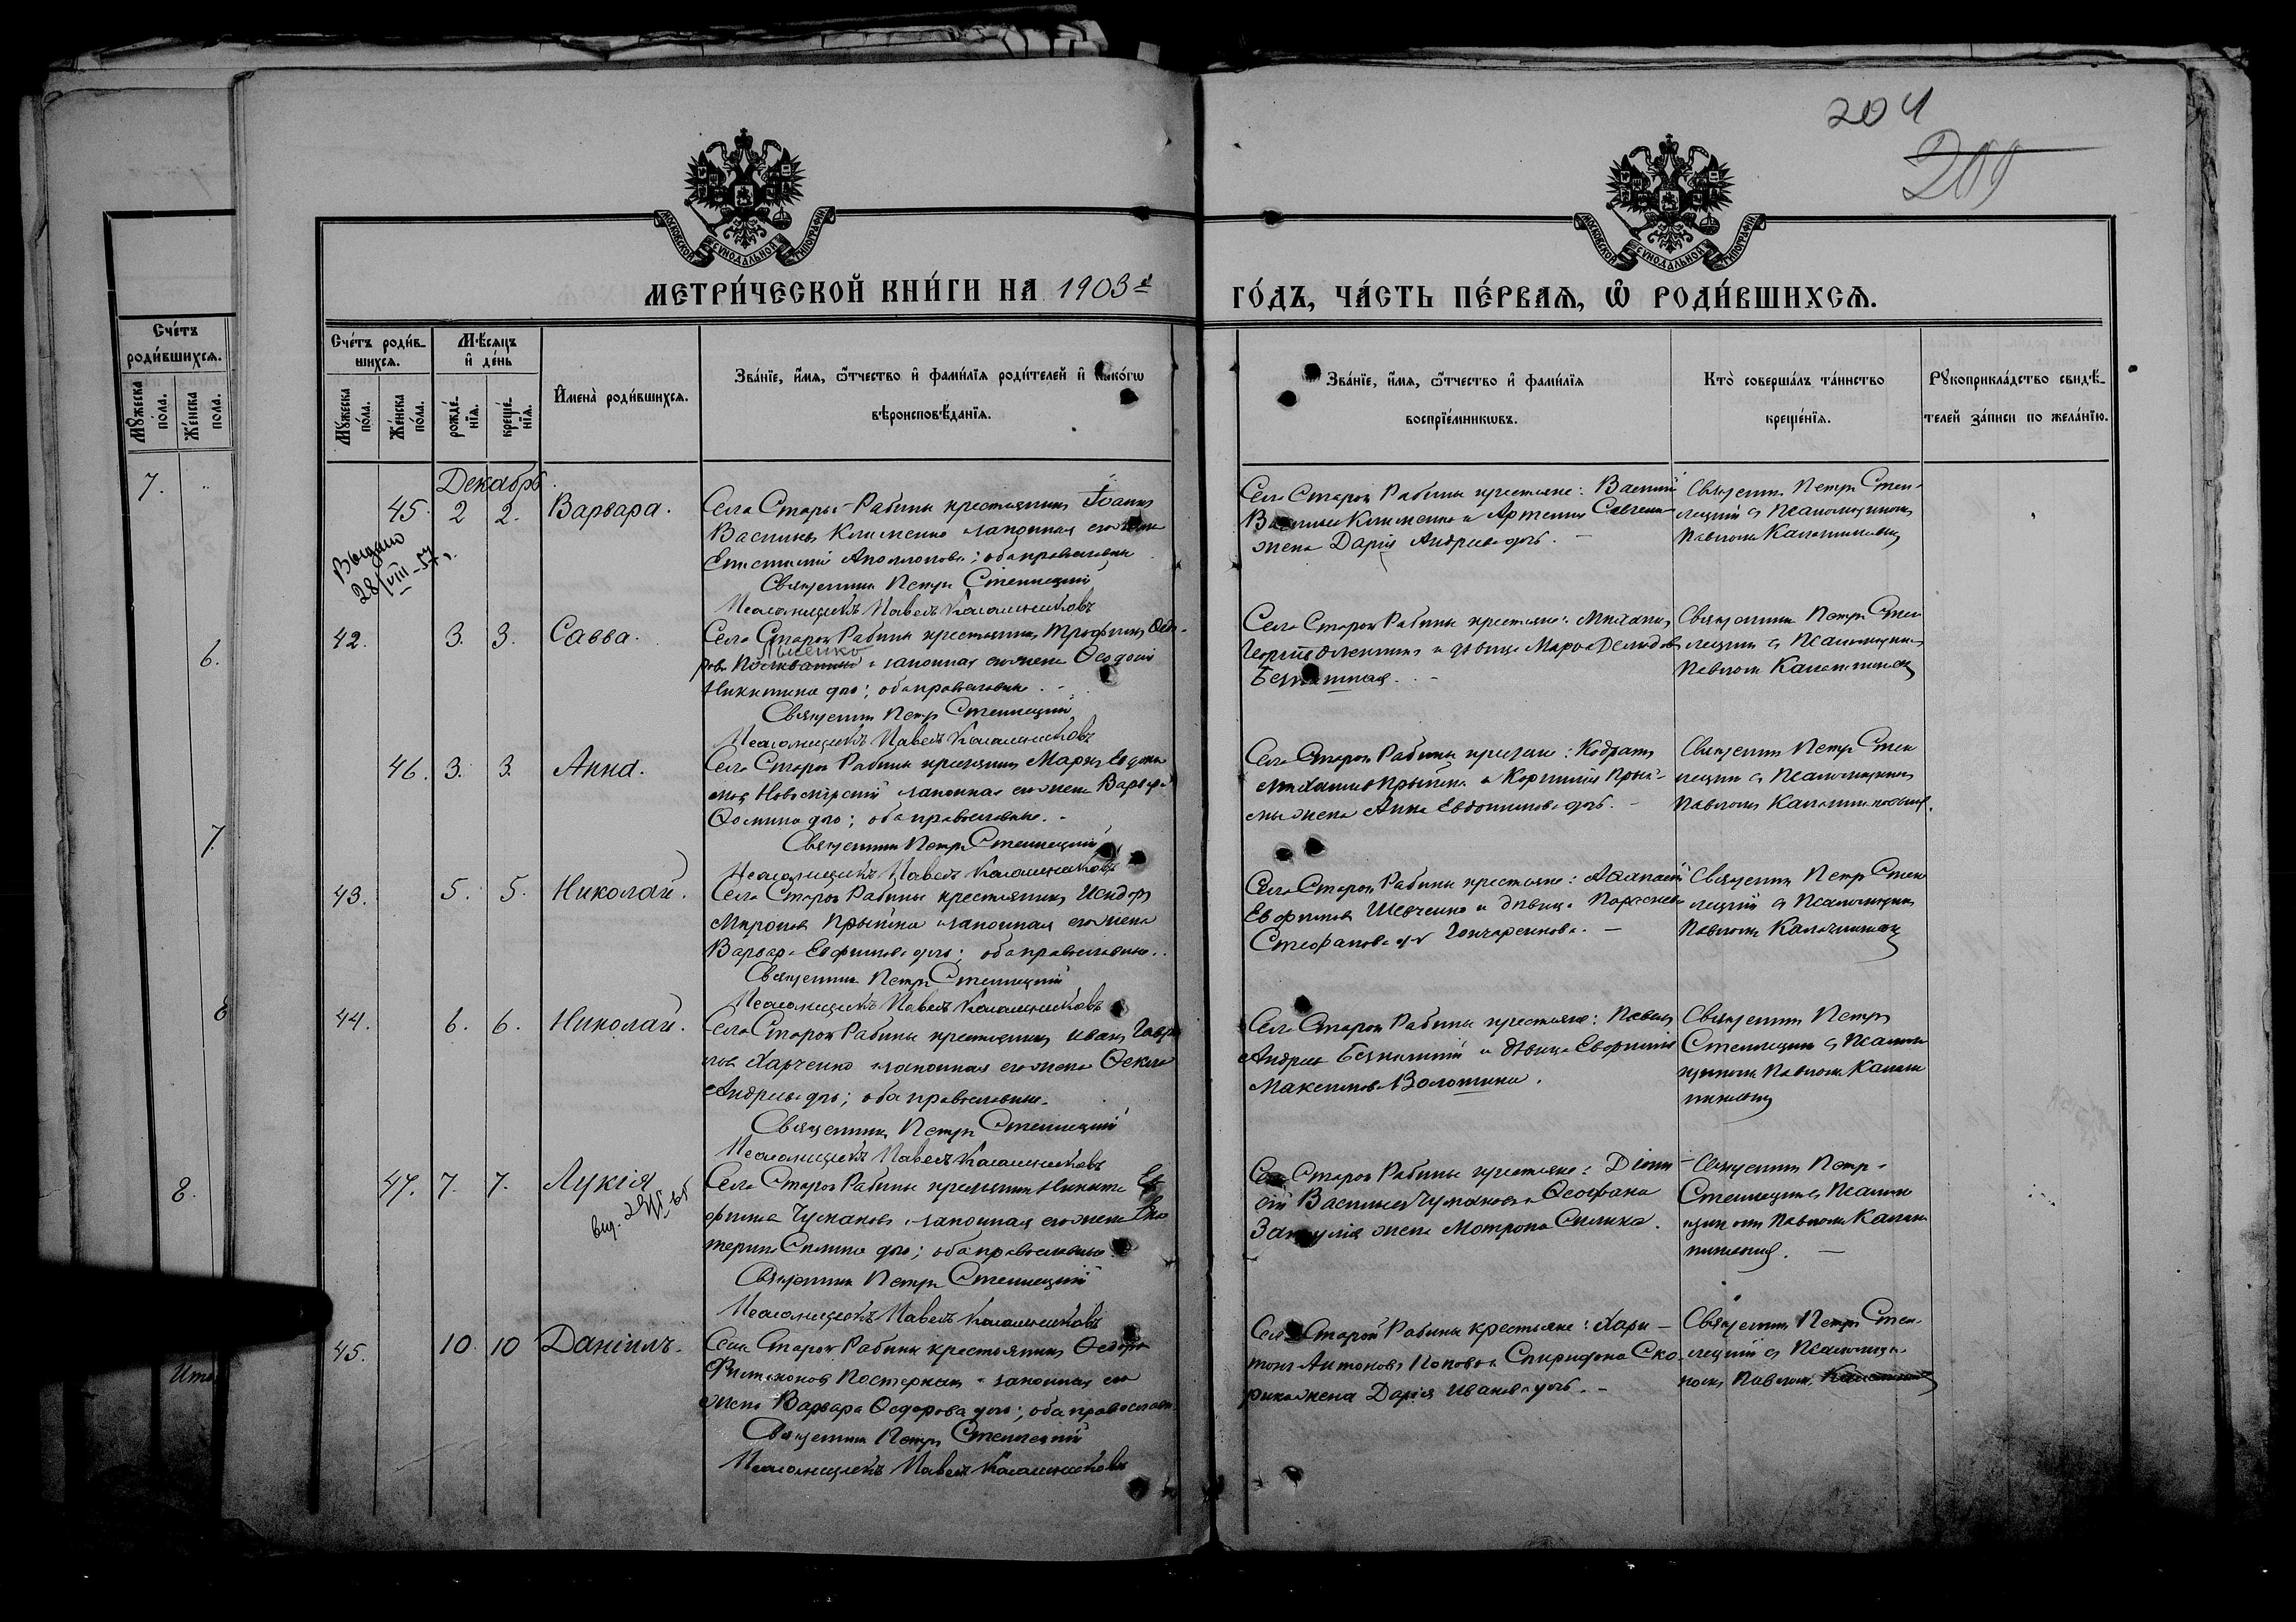 204
209
МОСКОВСКОЙ СѴНОДАЛЬНОЙ ТИПОГРАФІИ
МОСКОВСКОЙ СѴНОДАЛЬНОЙ ТИПОГРАФІИ
МЕТРИ́ЧЕСКОЙ КНИ́ГИ НА 1903й
ГО́ДЪ, ЧА́СТЬ ПЕ́РВАѦ, Ѡ РОДИ́ВШИХСѦ.
Сче́тъ
роди́вшихсѧ.
Мꙋ́жеска по́ла.
Же́нска по́ла.
7.
6.
7.
8.
Сче́тъ роди́в-
шихсѧ.
Мꙋ́жеска по́ла.
Же́нска по́ла.
Мѣ́сѧцъ
и҆ де́нь
рожде́-
нїѧ.
креще́-
нїѧ.
И҆мена̀ роди́вшихсѧ.
Зва́нїе, и҆́мѧ, ѻ҆́тчество и҆ фами́лїѧ роди́телей и҆ како́гѡ
вѣроисповѣ́данїѧ.
Зва́нїе, и҆́мѧ, ѻ҆́тчество и҆ фами́лїѧ
воспрїе́мникѡвъ.
Кто̀ соверша́лъ та́инство
креще́нїѧ.
Рꙋкоприкла́дство свидѣ́-
телей за́писи по жела́нїю.
Декабрь.
45. 2 2. Варвара.
Выдано
28/VIII-57 г.
Села Старой Рабины крестьянинъ Іоаннъ
Васильевъ Клименко и законная его жена
Аполлонова; оба православные
Священникъ Петръ Стеллецкій
Псаломщикъ Павелъ Калашниковъ
Села Старой Рабины крестьяне: Василій
Васильевъ Клименко и Артемія Савченко
жена Дарія Андреева дочь.
Священникъ Петръ Стел-
лецкій съ Псаломщикомъ
Павломъ Калашниковымъ
42. 3. 3. Савва.
Села Старой Рабины крестьянинъ Трофимъ Ѳедо-
ровъ и законная его жена Ѳеодосія
Никитина дочь; оба православные.
Священникъ Петръ Стеллецкій
Псаломщикъ Павелъ Калашниковъ
Села Старой Рабины крестьяне: Михаилъ
Георгіевъ и дѣвица Марѳа Демидова
Священникъ Петръ Стел
лецкій съ Псаломщикомъ
Павломъ Калашниковымъ
46. 3. 3. Анна.
Села Старой Рабины крестьянинъ Маркъ Евдоки
мовъ Новомірскій и законная его жена Варвара
Ѳомина дочь; оба православные.
Священникъ Петръ Стеллецкій
Псаломщикъ Павелъ Калашниковъ
Села Старой Рабины крестьяне: Кодратъ
Михаиловъ Прыйма и Корнилія Прый-
мы жена Анна Евдокимова дочь.
Священникъ Петръ Стел
лецкій съ Псаломщикомъ
Павломъ Калашниковымъ.
43. 5. 5. Николай.
Села Старой Рабины крестьянинъ Исидоръ
Мироновъ Прыйма и законная его жена
Варвара Евфимова дочь; оба православные.
Священникъ Петръ Стеллецкій
Псаломщикъ Павелъ Калашниковъ
Села Старой Рабины крестьяне: Аѳанасій
Евфимовъ Шевченко и дѣвица Параскева
Стефанова Гончаренкова.
Священникъ Петръ Стел
лецкій съ Псаломщикомъ
Павломъ Калашниковымъ
44. 6. 6. Николай.
Села Старой Рабины крестьянинъ Иванъ Гаври
ловъ Харченко и законная его жена Ѳекла
Андреева дочь; оба православные.
Священникъ Петръ Стеллецкій
Псаломщикъ Павелъ Калашниковъ
Села Старой Рабины крестьяне: Павелъ
Андреевъ и дѣвица Евфимія
Максимова Волошина.
Священникъ Петръ
Стеллецкій съ Псалом
щикомъ Павломъ Калаш
никовымъ
47. 7. 7. Лукія
Села Старой Рабины крестьянинъ Никита Ев
фимовъ Чумаковъ и законная его жена Ека
терина дочь; оба православные.
Священникъ Петръ Стеллецкій
Псаломщикъ Павелъ Калашниковъ
Села Старой Рабины крестьяне: Діони
сій Васильевъ Чумаковъ и Ѳеофана
жена Матрона
Священникъ Петръ
Стеллецкій съ Псалом
щикомъ Павломъ Калаш
никовымъ.
45. 10. 10 Даніилъ.
Села Старой Рабины крестьянинъ Ѳедоръ
и законная его
жена Варвара Ѳедорова дочь; оба православн.
Священникъ Петръ Стеллецкій
Псаломщикъ Павелъ Калашниковъ
Села Старой Рабины крестьяне: Хари-
тонъ Антоновъ Поповъ и Спиридона Ско-
рика жена Дарія Иванова дочь.
Священникъ Петръ Стел-
лецкій съ Псаломщи-
комъ Павломъ